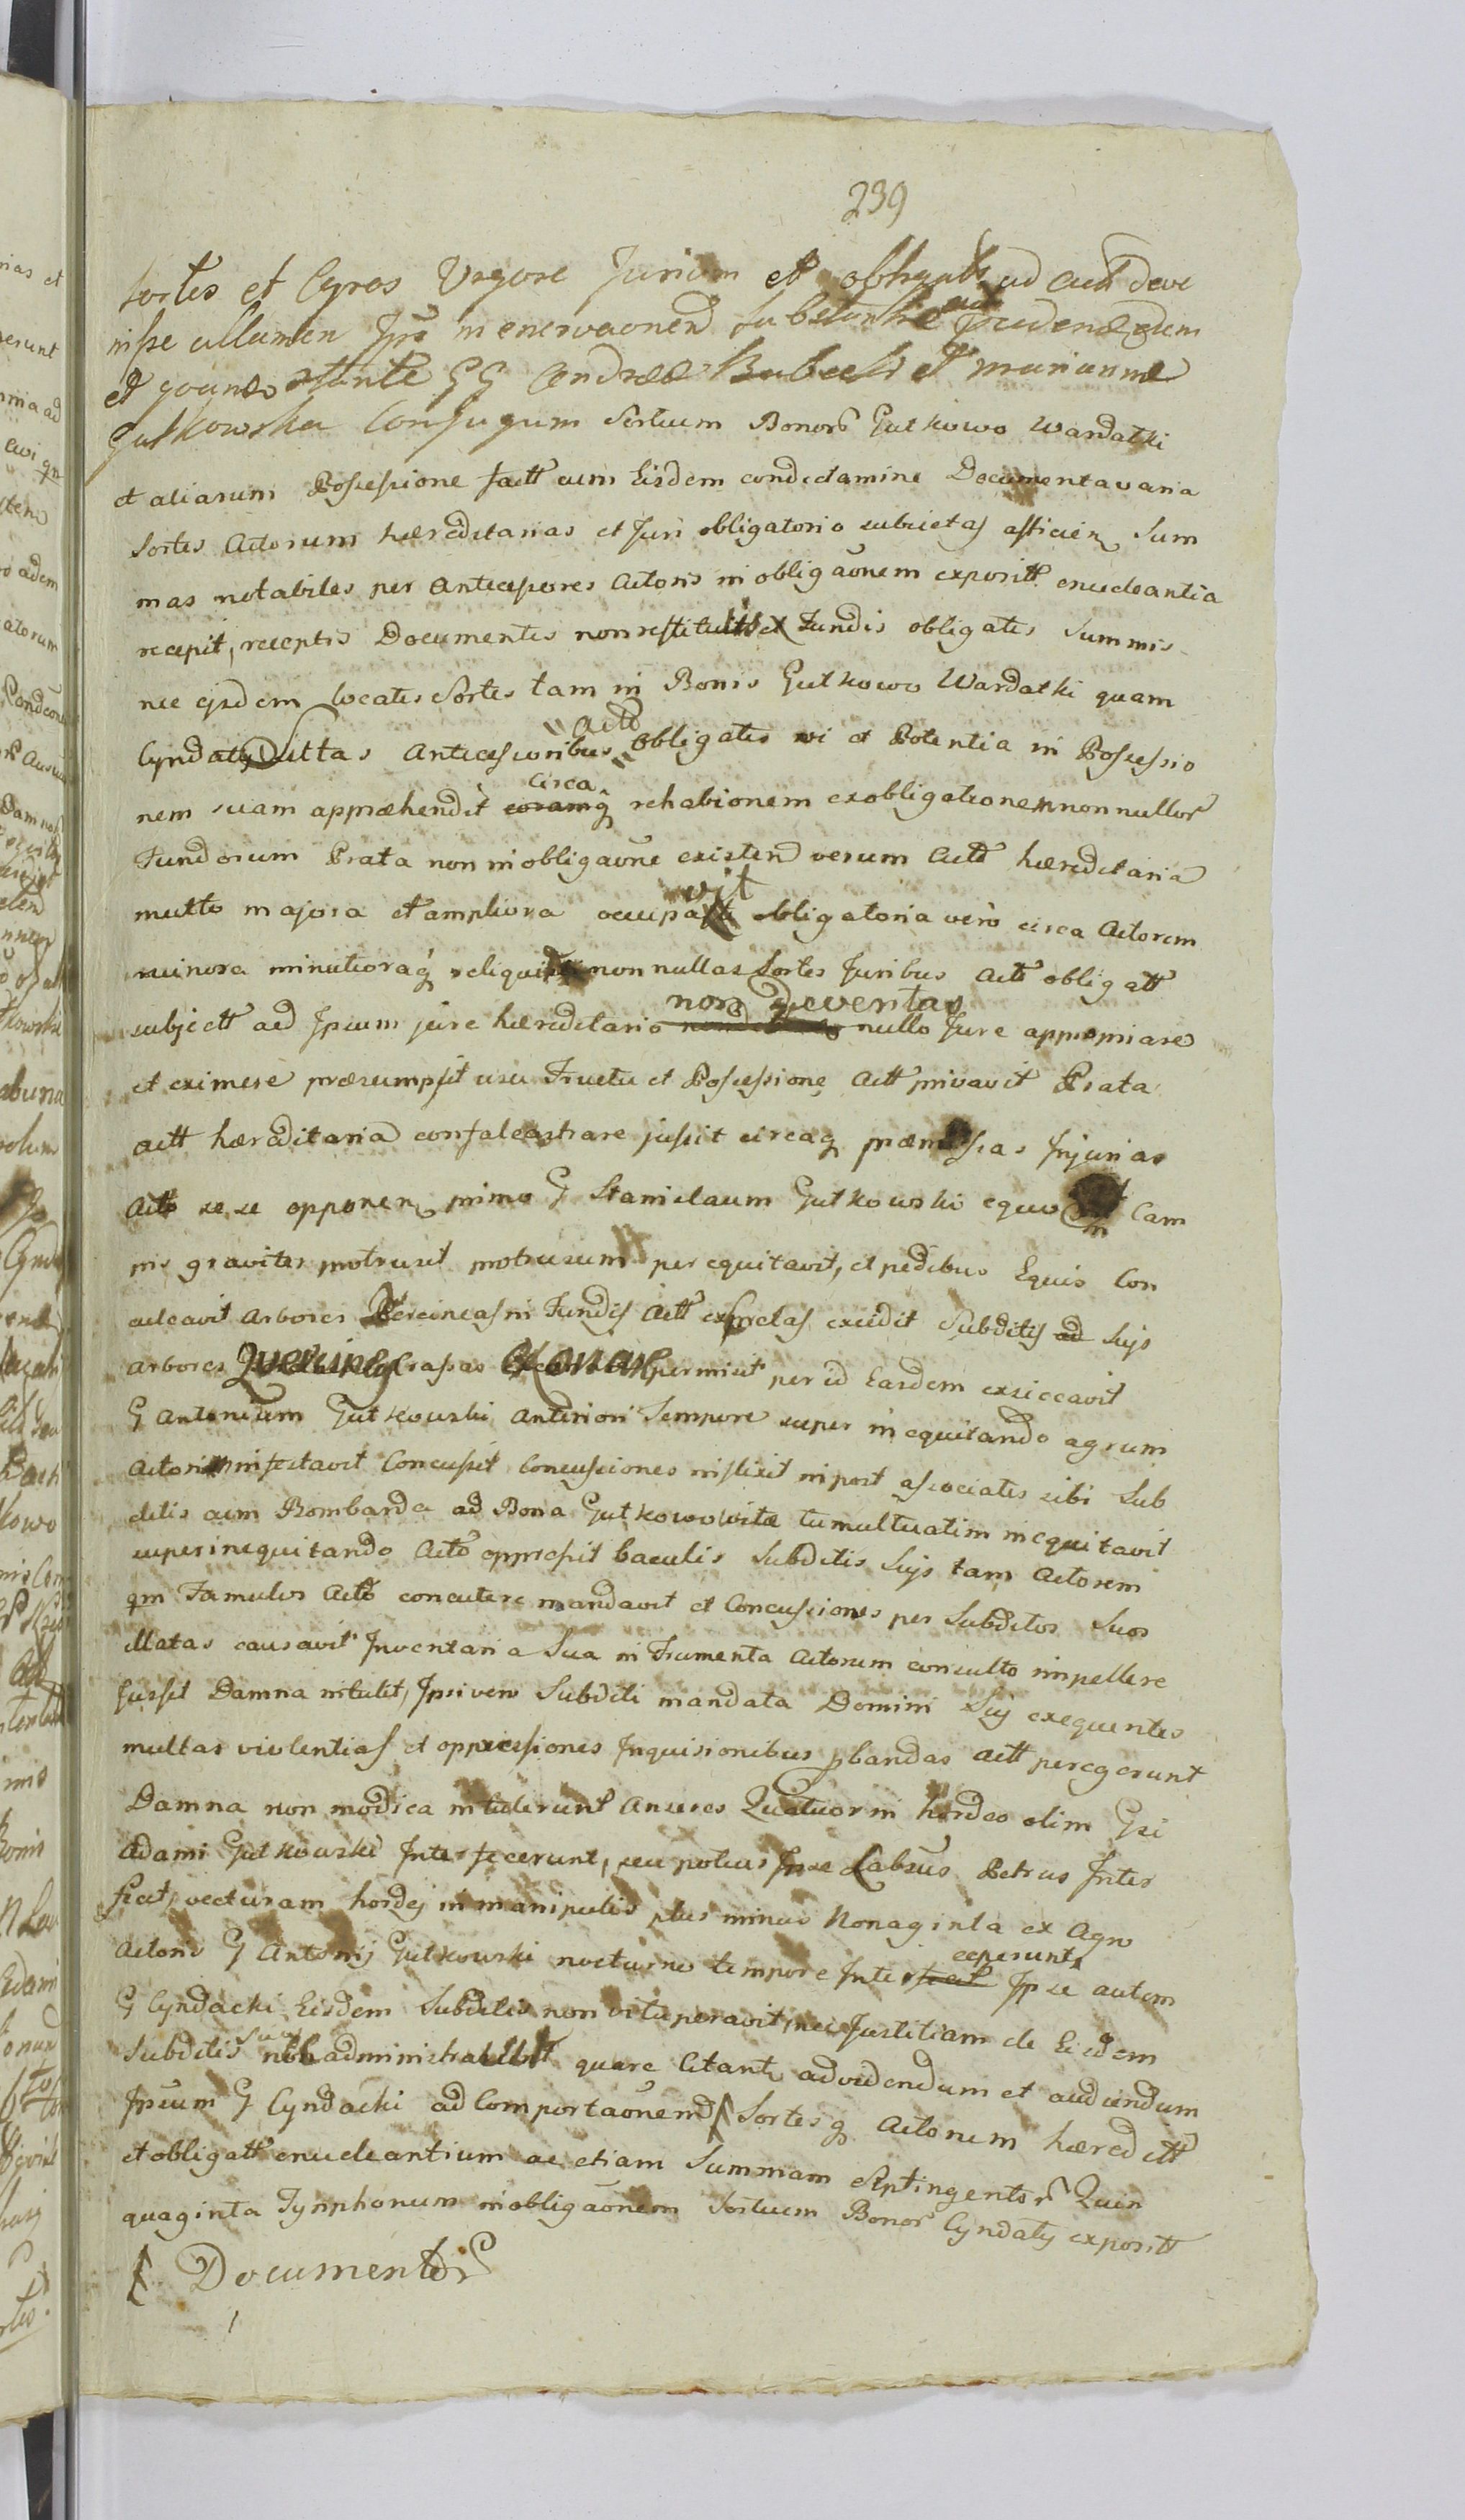 239
sortes et Agros Vigore Jurium et ad Act deve
nisse
et stante GG Andreæ et Marianne
Gutkowska Conjugum Sortium Bonor Gutkowo Wardatki
et aliarum Possessione fatt cum Eisdem condictamine Documenta varia
Sortes Actorum hæreditarias et Juri obligatorio subiectas afficien Sum
mas notabiles per Antecessores Actoris in obligaonem exposit enucleantia
recepit, receptis Documentis non restitutis ex Fundis obligatis Summis
nec ejsdem locatis Sortes tam in Bonis Gutkowo Wardatki quam
Cyndaty Sittas Antecessoribus Actō obligatis vi et Potentia in Possessio
nem suam appræhendit circa rehabionem exobligationem nonnullor
Fundorum Prata non in obligaone existen verum Actō hæreditaria
multo majora et ampliora occupavit obligatoria verò circa Actorem
minora minutioraq reliquit non nullas Sortes Juribus Actō obligatt
subjectt ad Ipsum jure hæreditario non deventas nullo Jure appropriare
et eximere præsumpsit usu Fructu et Possessione Actt privavit Prata
actt hæreditaria confalcastrare jussit circaq præmissas Injurias
Actō sese opponen primo G Stanislaum Gutkowski equo Cam
pis graviter protrusit protrusum per equitavit, et pedibus Equis Con
culcavit Arbores in Fundis Actt excretas excidit Subditis ad Sujs
arbores Quercineas crassas permisit per id Easdem exsiccavit
G Antonium Gutkowski Anteriori Tempore super inequitando agrum
Actoris infestavit Concussit Concussiones inflixit in post associatis sibi Sub
ditis cum Bombarda ad Bona Gutkowowitæ tumultuatim inequitavit
superinequitando Actō oppressit baculis Subditis Sujs tam Actorem
qm Famulos Actō concutere mandavit et Concussiones per Subditos Suos
illatas causavit Inventaria Sua in Frumenta Actorum consulto impellere
Jussit Damna intulit, Ipsi vero Subditi mandata Domini Suj exequentes
multas violentias et oppressiones Inquisionibus pbandas Actt peregerunt
Damna non modica intulerunt Anseres Quatuor in hordeo olim Gsi
Adami Gutkowski Interfecerunt, seu potius Ipse Labsus Petrus Inter
fecit, vecturam hordej in manipulis plus minus Nonaginta ex Agro
Actoris G Antonij Gutkowski nocturno tempore Interceperunt Ipse autem
G Cyndacki Eisdem Subditis non vituperavit, nec Justitiam de Eisdem
Subditis suis administravit quare Citant ad videndum et audiendum
Ipsum G Cyndacki ad Comportaonem Sortesq Actorum hæreditt
et obligatt enucleantium ac etiam Summam Septingentor Quin
quaginta Tynphonum in obligaonem Sortium Bonor Cyndaty exposit
Documentor